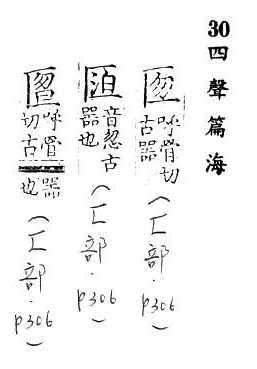 30四聲篇海
呼骨切
古器
(匚部.p306)
音忽古
器也
(匚部.p306)
匫
呼骨
切古
器
也
(匚部.p306)